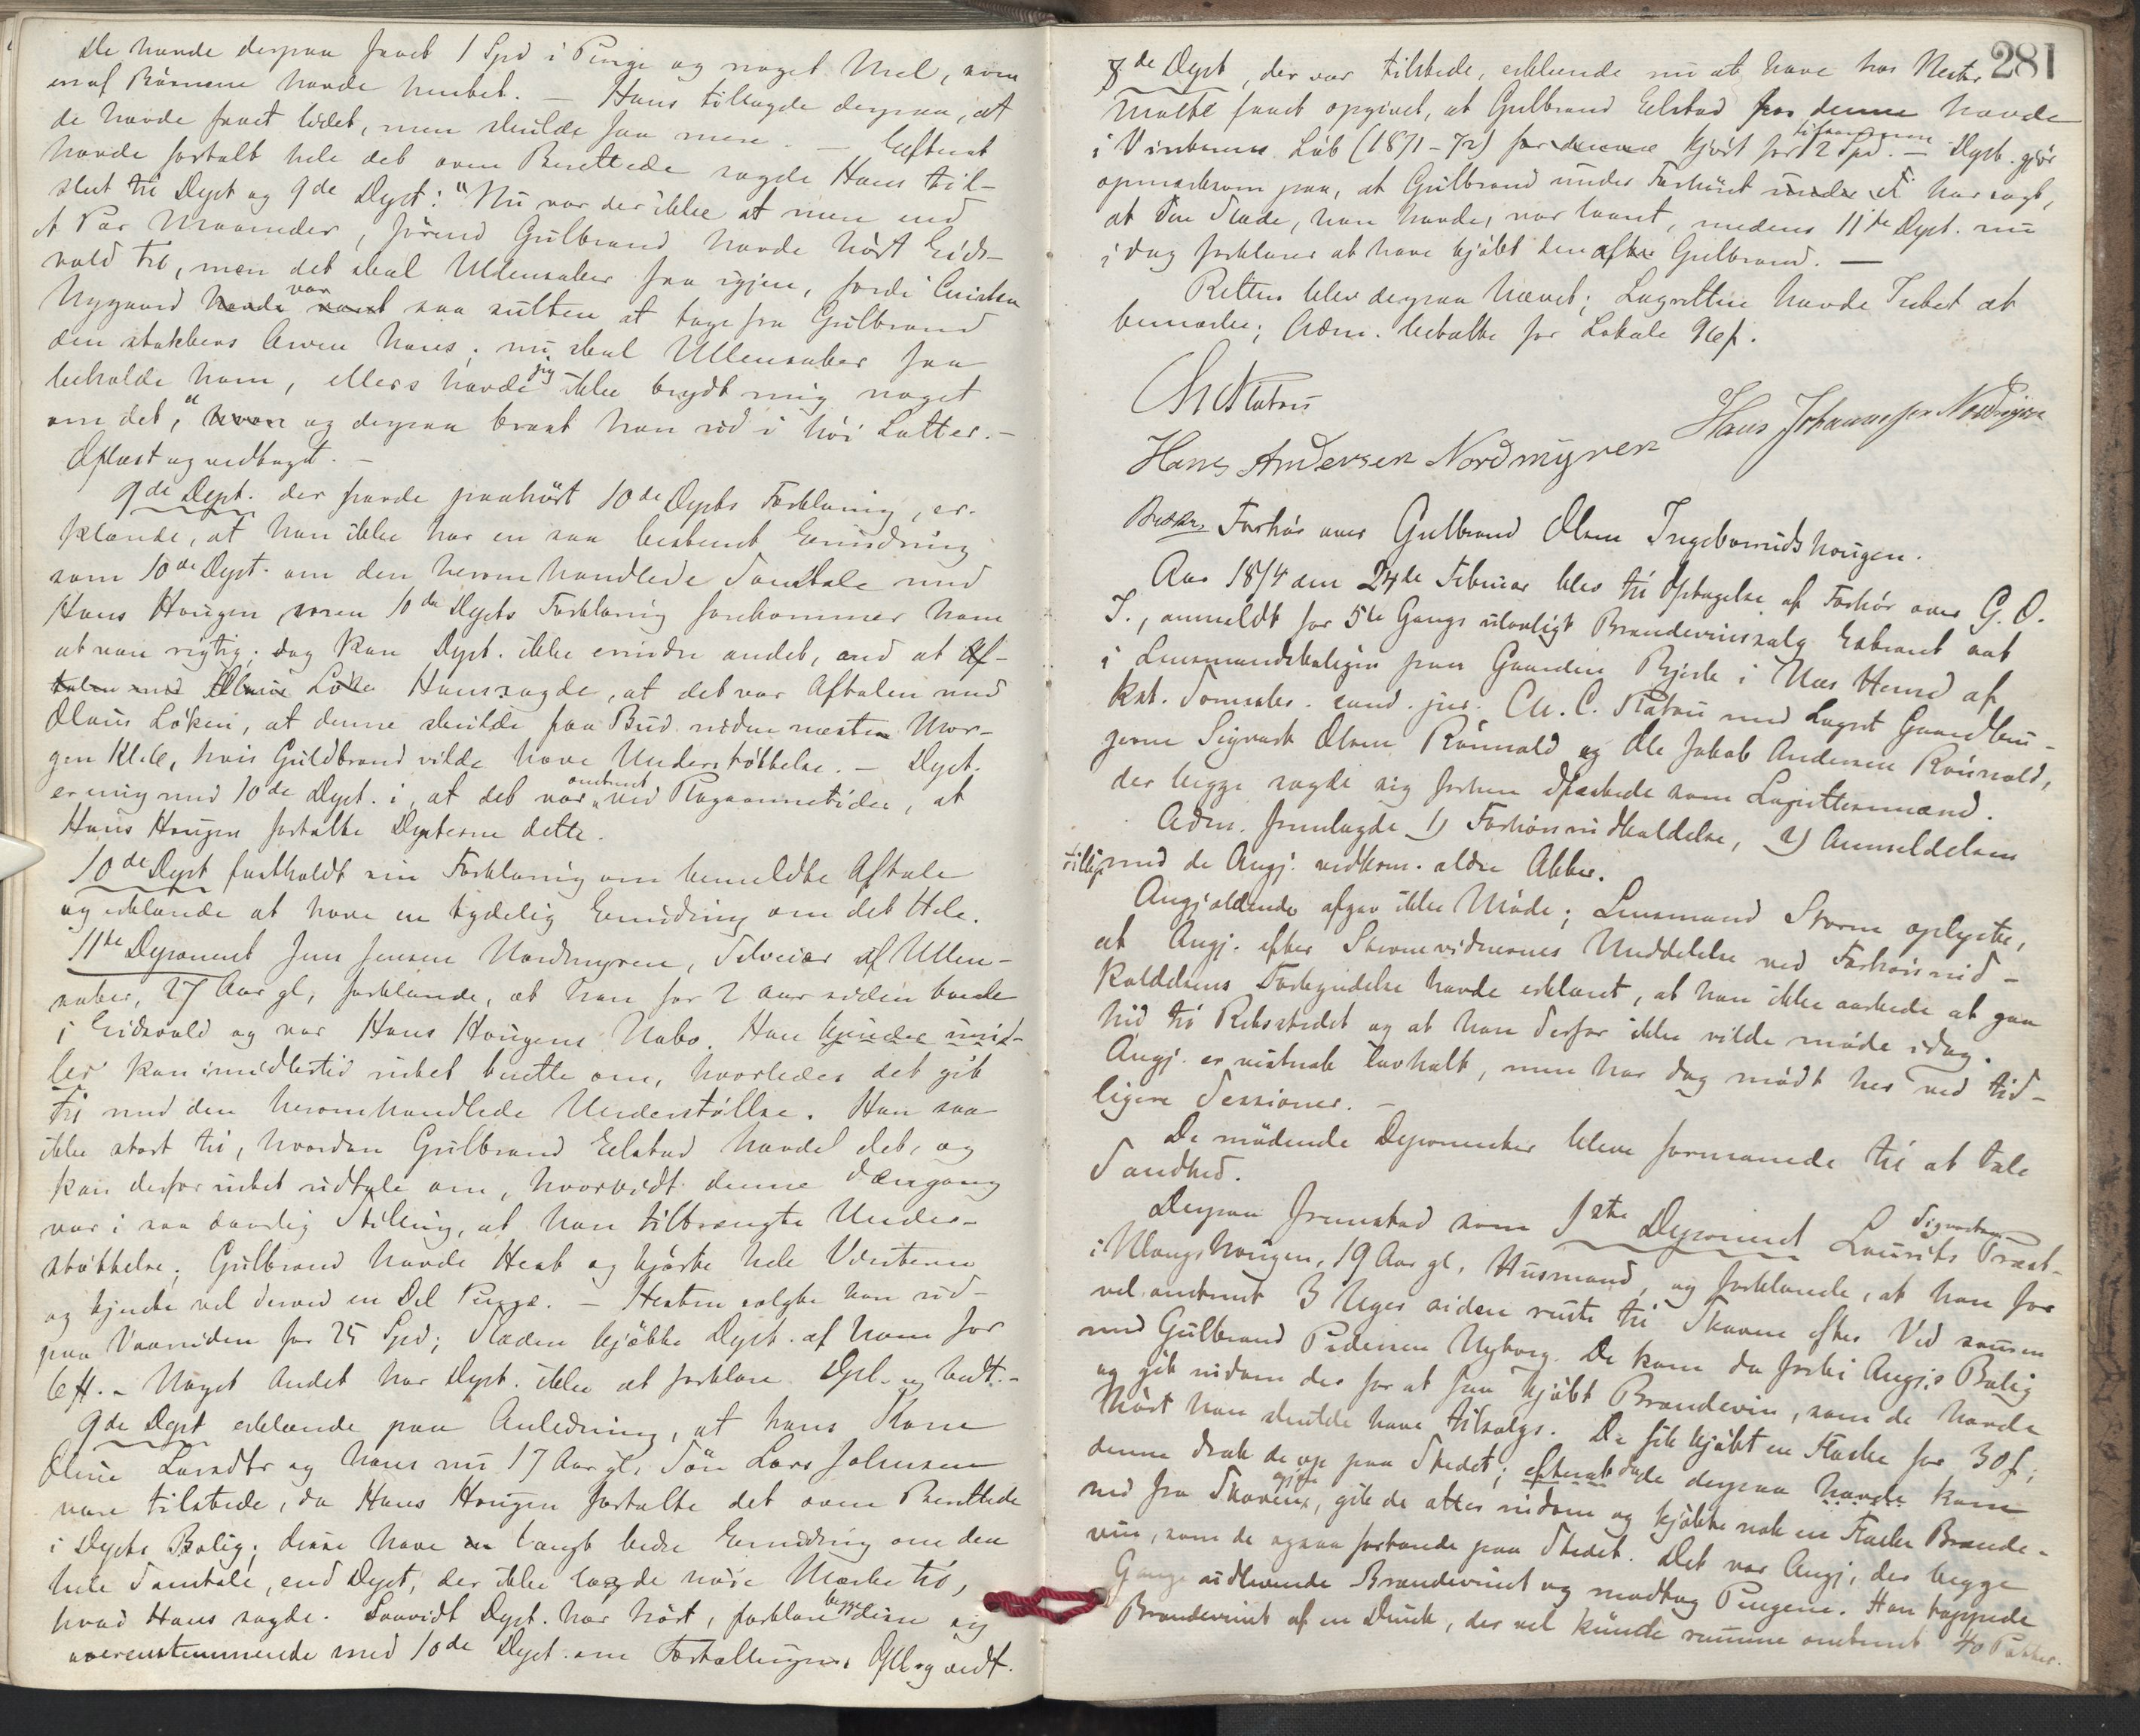 De havde derpaa faaet 1 Spd i Penge og noget Mel, som
en af Börnene havde hentet. — Hans tillagde derpaa, at
de havde faaet lidet, men skulde faa mere. — Efterat
havde fortalt hele det oven Berettede sagde Hans til-
slut til Dept og 9de Dept: "Nu var der ikke at mere end
et Par Maaneder, förend Gulbrand havde hört Eids-
vold til, men det skal Ullensaker faa igjen, fordi Christen
Nygaard havde var været saa sulten at tage fra Gulbrand
den stakkers Arven hans; nu skal Ullensaker faa
beholde ham, ellers havde jeg ikke brydt mig noget
om det," hvor og derpaa brast han ud i höi Latter. —
Oplæst og vedtaget. —
9de Dept. der havde paahört 10de Depts Forklaring, er-
klærede, at han ikke har en saa bestemt Erindring
som 10de Dept. om den heromhandlede Samtale med
Hans Haugen, men 10de Depts Forklaring forekommer ham
at være rigtig; dog kan Dept. ikke erindre andet, end at Af-
talen med Olaus Löke Hans sagde, at det var Aftalen med
Olaus Löken, at denne skulde faa Bud inden næste Mor-
gen Kl. 6, hvis Guldbrand vilde have Understöttelse. — Dept.
er enig med 10de Dept. i, at det var omtrent ved Plogaannetider, at
Hans Haugen fortalte Depterne dette.
10de Dept fastholdt sin Forklaring om bemeldte Aftale
og erklærede at have en tydelig Erindring om det Hele.
11te Deponent Jens Jensen Nordmyren, Selveier af Ullen-
saker, 27 Aar gl, forklarede, at han for 2 Aar siden boede
i Eidsvold og var Hans Haugens Nabo. Han kjender imid-
ler kan imidlertid intet berette om, hvorledes det gik
til med den heromhandlede Understöttelse. Han saa
ikke stort til, hvordan Gulbrand Eelstad havde det, og
kan derfor intet udtale om, hvorvidt denne dengang
var i saa daarlig Stilling, at han tiltrængte Under-
stöttelse; Gulbrand havde Hest og kjörte hele Vinteren
og tjente vel derved en Del Penge. — Hesten solgte han ud-
paa Vaarsiden for 25 Spd; Slæden kjöbte Dept. af ham for
6 ₶. — Noget Andet har Dept. ikke at forklare. Opl. og vedt. —
9de Dept erklærede paa Anledning, at hans Kone
Oline Larsdtr og hans nu 17 Aar gl. Sön Lars Johnsen
vare tilstede, da Hans Haugen fortalte det oven Berettede
i Depts Bolig; disse have en langt bedre Erindring om den
hele Samtale, end Dept, der ikke lagde nöie Mærke til,
hvad Hans sagde. Saavidt Dept. har hört, forklare begge disse sig
overensstemmende med 10de Dept. om Fortællingen. Opl. og vedt.
281
8de Dept, der var tilstede, erklærede nu at have hos Mester
Malthe faaet opgivet, at Gulbrand Eelstad hos denne havde
i Vinterens Löb (1871-72) for denne kjört for tilsammen 12 Spd. — Dept. gjör
opmærksom paa, at Gulbrand under Forhöret under et har sagt,
at den Slæde, han havde, var laant, medens 11te Dept. nu
idag forklarer at have kjöbt den after Gulbrand. —
Retten blev derpaa hævet; Lagrettin havde Intet at
bemærke; Adm. betalte for Lokale 96 ſ.
Ch. C. Platou
Hans Andersen Nordmyren Hans Johannesen Nordmyren
Forhör over Gulbrand Olsen Ingeborrudshaugen.
Aar 1874 den 24de Februar blev til Optagelse af Forhör over G. O.
I., anmeldt for 5te Gangs ulovligt Brændevinssalg Extraret sat
i Lensmandsboligen paa Gaarden Bjerke i Næs Herred af
kst. Domsaber. cand. jur. Ch. C. Platou med Lagret Gaardbru-
gerne Sigvart Olsen Raanald og Ole Jakob Andersen Raanald,
der begge sagde sig forhen edfæstede som Lagrettesmænd.
Adm. fremlagde 1) Forhörsindkaldelse, 2) Anmeldelsen
tillige med de Angj. vedkom. ældre Akter.
Angjældende afgav ikke Möde; Lensmand Storm oplyste,
at Angj. efter Stevnevidnernes Meddelelse ved Forhörsind-
kaldelsens Forkyndelse havde erklæret, at han ikke orkede at gaa
hid til Retsstedet og at han derfor ikke vilde möde idag.
Angj. er vistnok lavhalt, men har dog mödt her ved tid-
ligere Sessioner. —
De mödende Deponenter bleve formanede til at tale
Sandhed.
Derpaa fremstod som 1ste Deponent Laurits Sigvartsen Præst-
i Vlangshaugen, 19 Aar gl, Husmand, og forklarede, at han for
vel omtrent 3 Uger siden reiste til Skoven efter Ved sammen
med Gulbrand Pedersen Nyborg. De kom da forbi Angj.s Bolig
og gik indom der for at faa kjöbt Brændevin, som de havde
hört han skulde have tilsalgs. De fik kjöbt en Flaske for 30 ſ;
denne drak de op paa Stedet; efterat da de derpaa havde kom
ned fra Skoven igjen, gik de atter indom og kjöbte nok en Flaske Brænde-
vin, som de ogsaa fortærede paa Stedet. Det var Angj., der begge
Gange udleverede Brændevinet og modtog Pengene. Han tappede
Brændevinet af en Dunk, der vel kunde rumme omtrent 40 Potter.